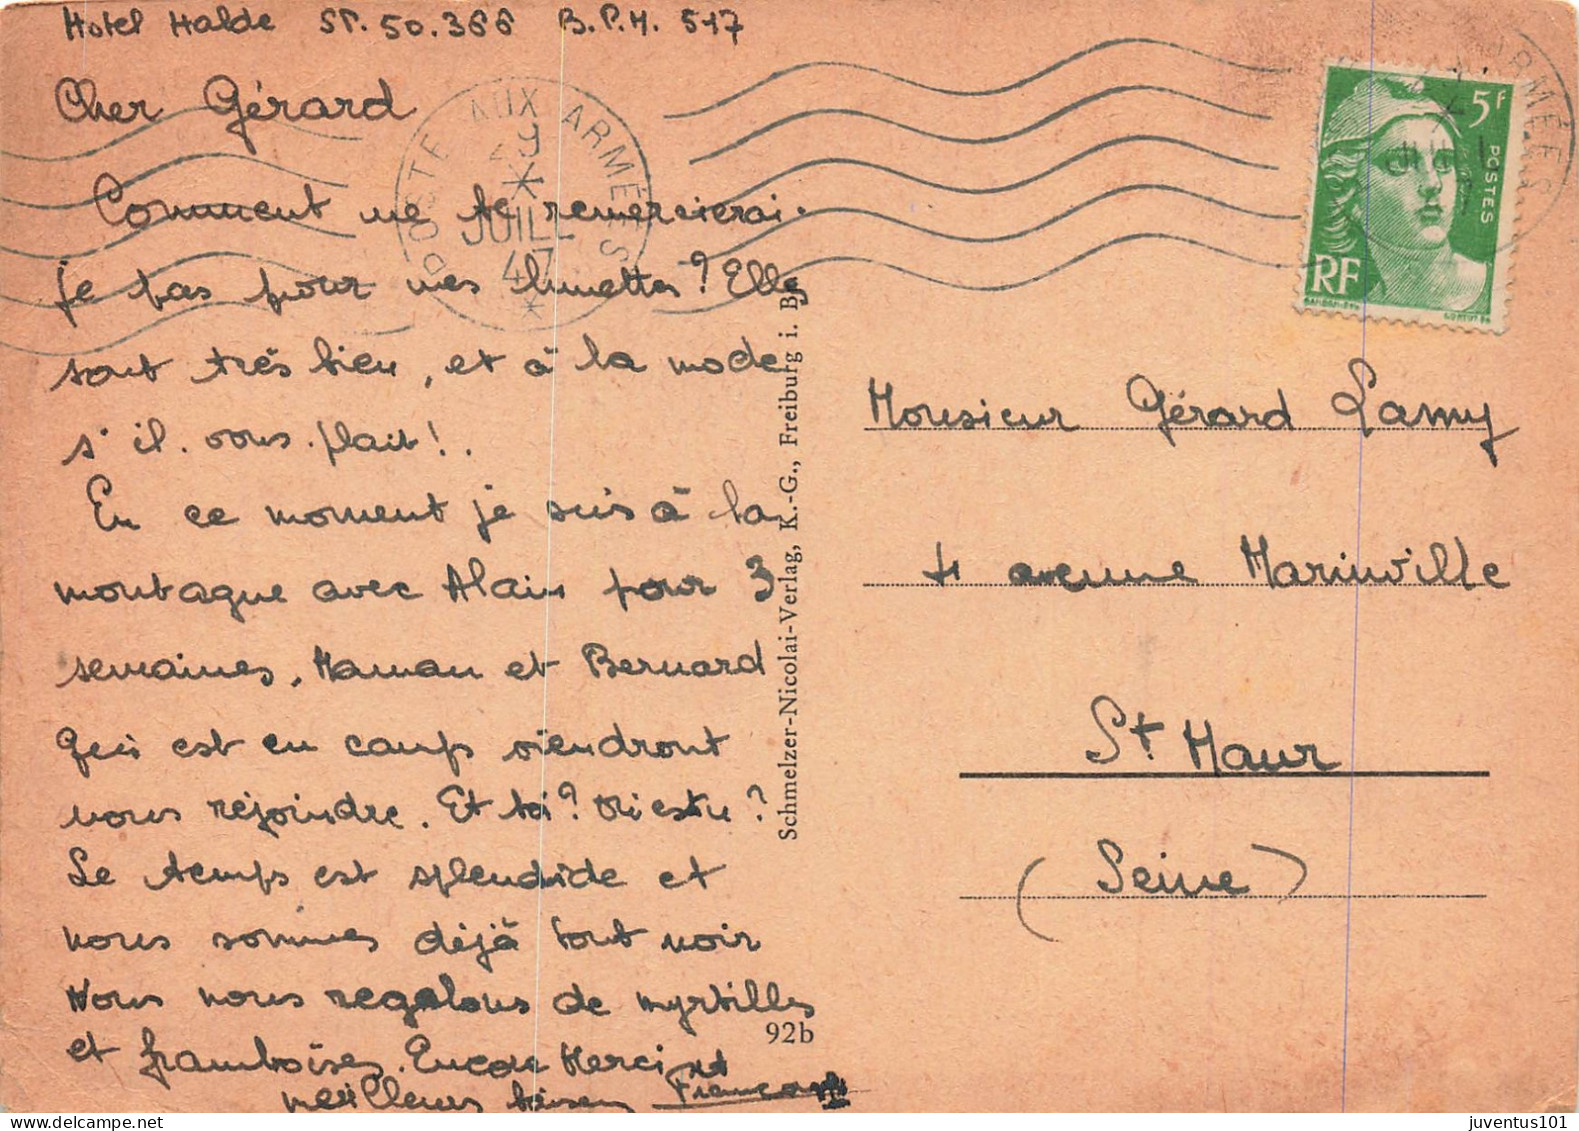 Hotel Halde SP. 50.366 B.P.M. 517
Cher Gérard
Comment ne te remercierai-
je pas pour mes lunettes? Elles
sont très bien, et à la mode
s'il-vous-plait!.
En ce moment je suis à la
montagne avec Alain pour 3
semaines, Maman et Bernard
qui est en camp viendront
nous rejoindre. Et toi? Où es tu?
Le temps est splendide et
nous sommes déjà tout noir
Nous nous regalons de myrtilles
et framboises. Encore Merci et
meilleurs baisers
POSTE AUX ARMÉES
29
JUIL
47
5F
POSTES
RF
ARMÉES
JUIL
Monsieur Gérard Lamy
4 avenue Marinville
St Maur
(Seine)
Schmelzer-Nicolai-Verlag, K.-G., Freiburg i. B
92b
juventus101